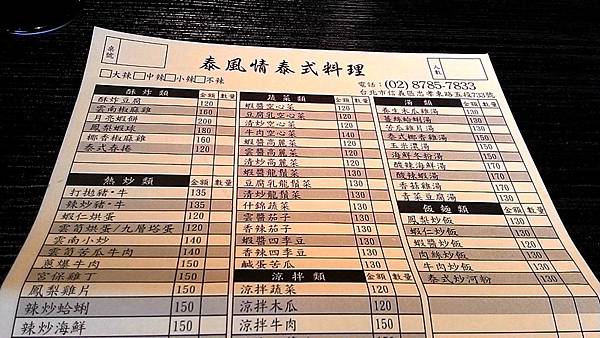 桌號
泰風情泰式料理
人數
□大辣□中辣□小辣□不辣
電話：(02) 8785-7833
台北市信義區忠孝東路五段733號
酥炸類 金額 數量
酥炸豆腐 120
雲南椒麻雞 160
月亮蝦餅 200
鳳梨蝦球 180
椰香椒麻雞 160
泰式春捲 120
熱炒類 金額 數量
打拋豬・牛 135
辣炒豬・牛 135
蝦仁烘蛋 120
雲筍烘蛋/九層塔蛋 120
雲南小炒 140
雲筍苦瓜牛肉 140
蔥爆牛肉 150
宮保雞丁 150
鳳梨雞片 150
辣炒蛤蜊 150
辣炒海鮮 150
蔬菜類 金額 數量
蝦醬空心菜 120
豆腐乳空心菜 120
清炒空心菜 120
牛肉空心菜 130
蝦醬高麗菜 120
雲醬高麗菜 120
清炒高麗菜 120
蝦醬龍鬚菜 130
豆腐乳龍鬚菜 130
清炒龍鬚菜 130
什錦蔬菜 130
雲醬茄子 130
香辣茄子 130
蝦醬四季豆 130
香辣四季豆 130
鹹蛋苦瓜 130
涼拌類 金額 數量
涼拌蔬菜 120
涼拌木瓜 120
涼拌牛肉 150
湯類 金額 數量
養生木瓜雞湯
薑絲蛤蜊湯
苦瓜雞片湯
泰式椰香雞湯
玉米濃湯
海鮮冬粉湯
酸辣海鮮湯 170
酸辣蝦湯 170
香菇雞湯 170
青菜豆腐湯
飯麵類 金額 數量
鳳梨炒飯
蝦仁炒飯
蝦醬炒飯 130
肉絲炒飯 130
牛肉炒飯 130
泰式炒河粉 130